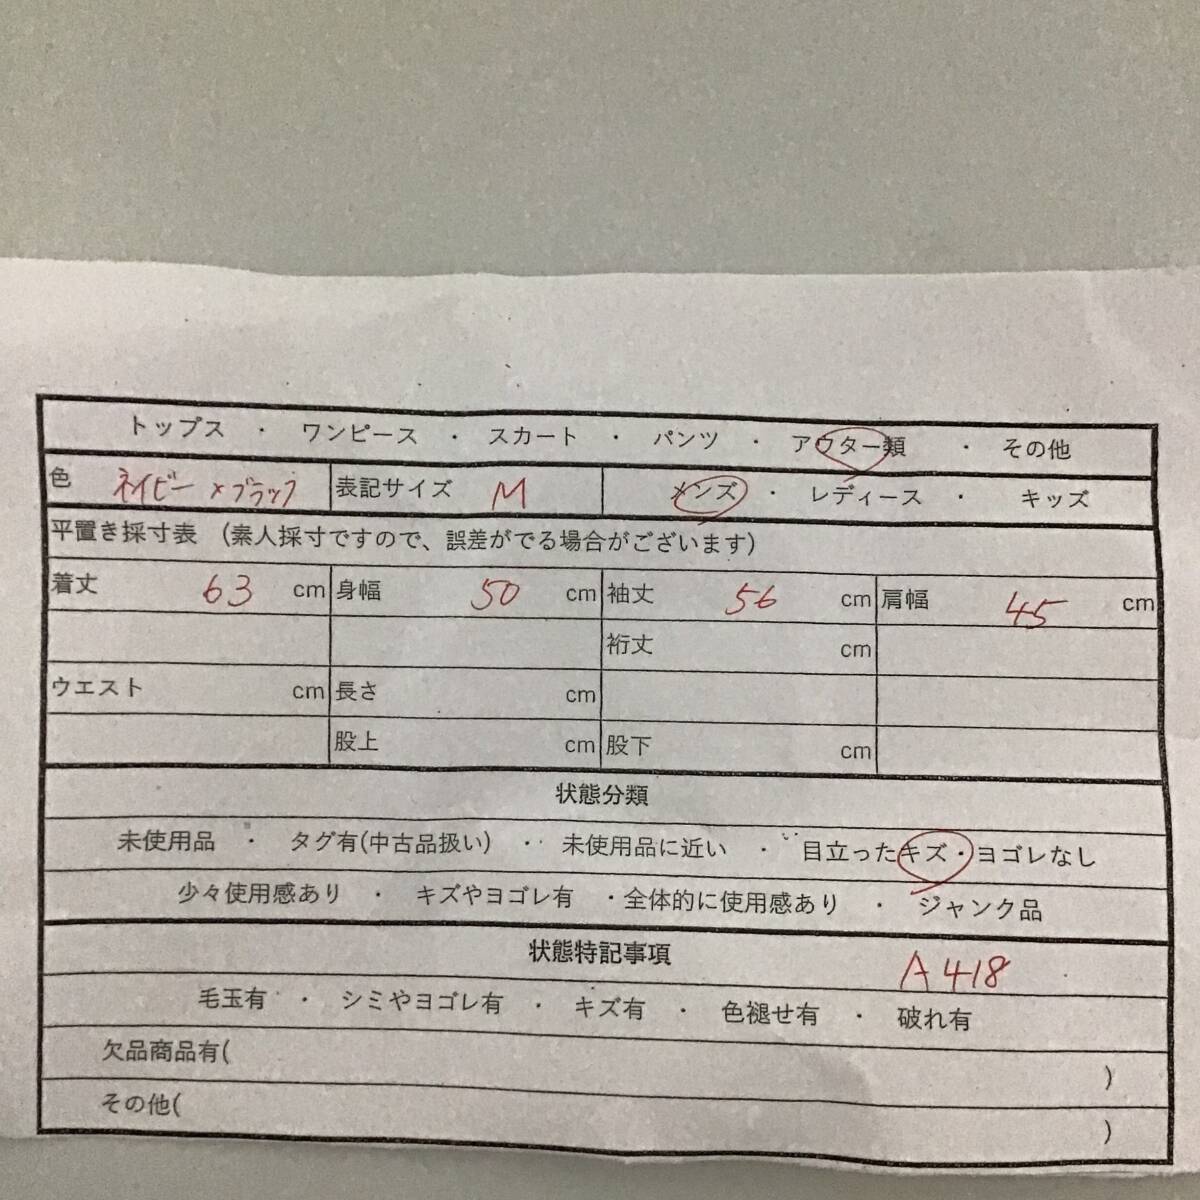 トップス ・ ワンピース ・ スカート ・ パンツ ・ アウター類 ・ その他
色 ネイビー×ブラック 表記サイズ M メンズ ・ レディース ・ キッズ
平置き採寸表 (素人採寸ですので、誤差がでる場合がございます)
着丈 63 cm 身幅 50 cm 袖丈 56 cm 肩幅 45 cm
裄丈 cm
ウエスト cm 長さ cm
股上 cm 股下 cm
状態分類
未使用品 ・ タグ有(中古品扱い) ・ 未使用品に近い ・ 目立ったキズ・ヨゴレなし
少々使用感あり ・ キズやヨゴレ有 ・全体的に使用感あり ・ ジャンク品
状態特記事項 A418
毛玉有 ・ シミやヨゴレ有 ・ キズ有 ・ 色褪せ有 ・ 破れ有
欠品商品有( )
その他( )